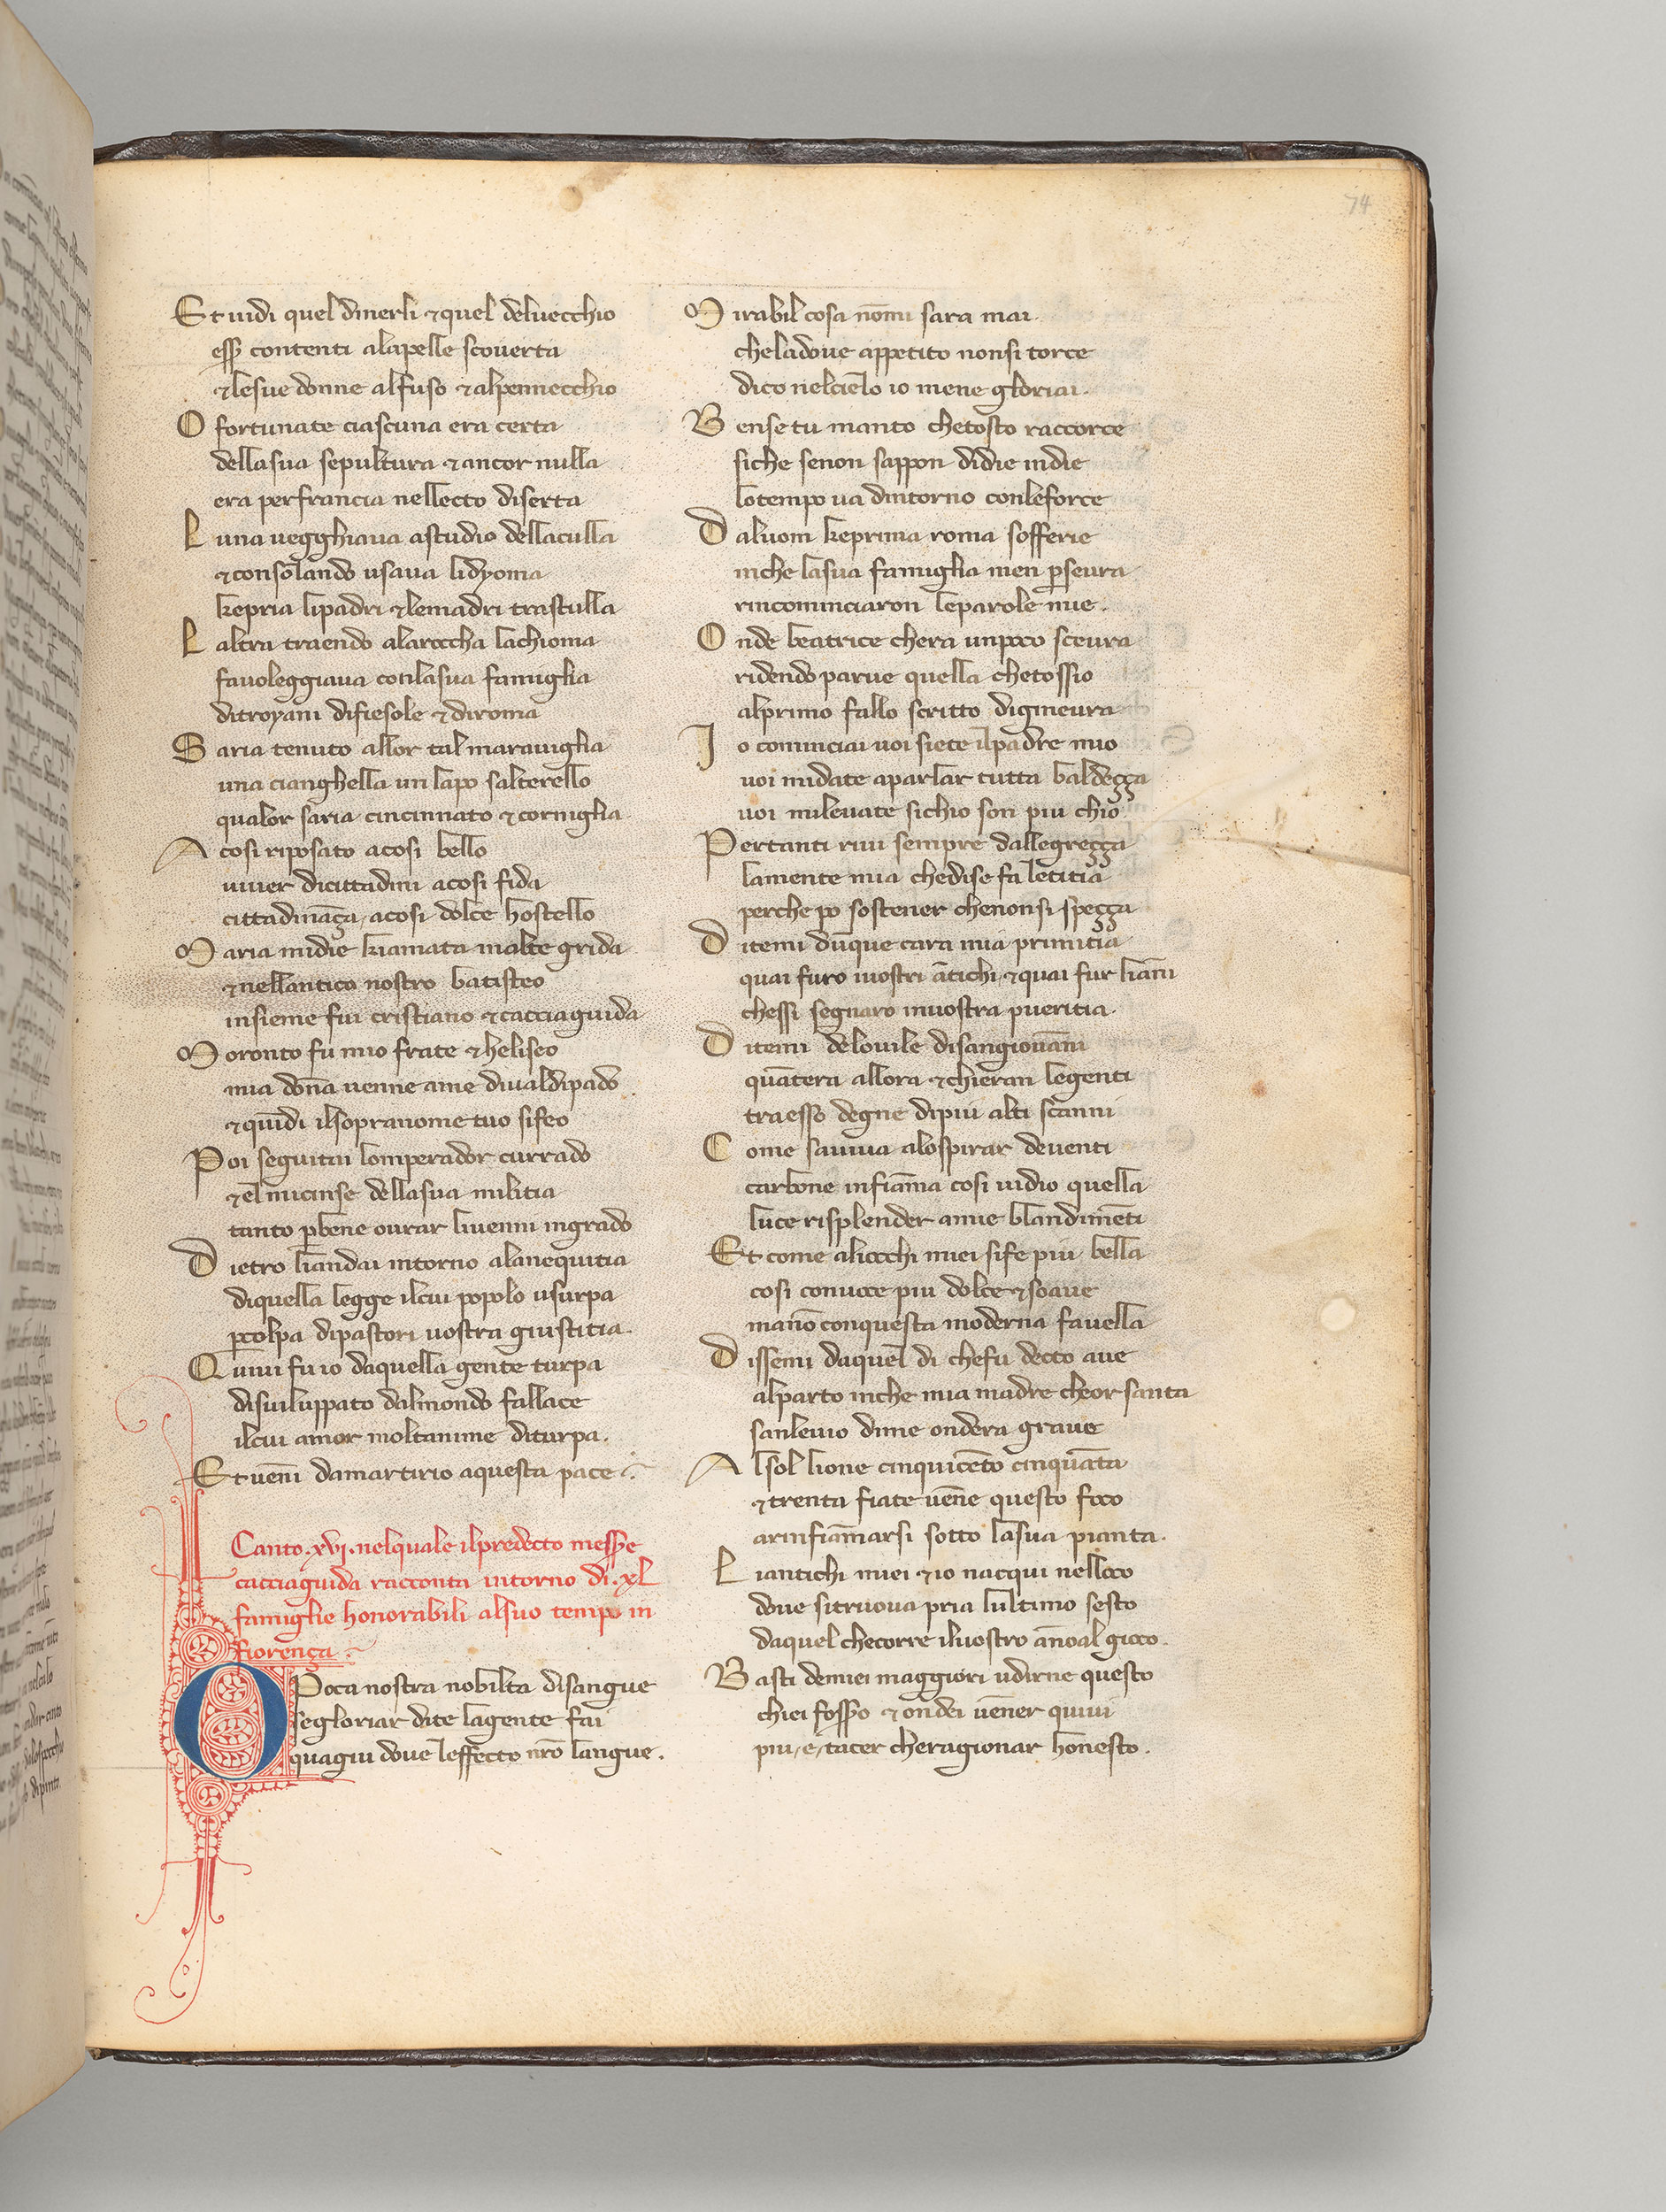 74
Et uidi quel dinerli & quel deluecchio
esser contenti alapelle scouerta
& lesue donne alfuso & alpennecchio
O fortunate ciascuna era certa
dellasua sepultura & ancor nulla
era perfrancia nellecto diserta
Luna uegghiaua astudio dellaculla
& consolando usaua lidyoma
kepria lipadri & lemadri trastulla
Laltra traendo alaroccha lachioma
fauoleggiaua conlasua famiglia
ditroyani difiesole & diroma
Saria tenuto allor tal marauiglia
una cianghella un lapo salterello
qualor saria cincinnato & corniglia
A cosi riposato acosi bello
uiuer dicittadini acosi fida
cittadināça, acosi dolce hostello
Maria midie kiamata inalte grida
& nellantico nostro batisteo
insieme fui cristiano & cacciaguida
Moronto fu mio frate & heliseo
mia dōna uenne ame diualdipado
& quīdi ilsopranome tuo sifeo
Poi seguitai lomperador currado
& el micinse dellasua militia
tanto p bene ourar liuenni ingrado
Dietro liandai intorno alanequitia
diquella legge ilcui popolo usurpa
p colpa dipastori uostra giustitia.
Quiui fu io daquella gente turpa
disuiluppato dalmondo fallace
ilcui amor moltanime diturpa.
Et uenī damartirio aquesta pace
Canto .xvj. nelquale ilpredecto messer
cacciaguida racconta intorno di .xl
famiglie honorabili alsuo tempo in
fiorença
O Poca nostra nobilta disangue
segloriar dite lagente fai
quagiu doue leffecto nrō langue.
Mirabil cosa nōmi sara mai.
cheladoue appetito nonsi torce
dico nelcielo io mene gloriai.
Bense tu manto chetosto raccorce
siche senon sappon didie indie
lotempo ua dintorno conleforce
Daluom keprima roma sofferie
inche lasua famiglia men pseura
rincominciaron leparole mie.
Onde beatrice chera unpoco sceura
ridendo parue quella chetossio
alprimo fallo scritto digineura
Io cominciai uoi siete ilpadre mio
uoi midate aparlar tutta baldeçça
uoi mileuate sichio son piu chio
Pertanti riui sempre dallegreçça
lamente mia chedise fa letitia
perche po sostener chenonsi speçça
Ditemi dūque cara mia primitia
quai furo iuostri ātichi & quai fur liāni
chessi segnaro inuostra pueritia.
Ditemi delouile disangiouāni
quātera allora & chieran legenti
traesso degne dipiu alti scanni
Come sauiua alospirar deuenti
carbone infiāma cosi uidio quella
luce risplender amie blandimēti
Et come aliocchi miei sife piu bella
cosi conuoce piu dolce & soaue
manō conquesta moderna fauella
Dissemi daquel di chefu decto aue
alparto inche mia madre cheor santa
sanleuio dime ondera graue
Alsol lione cinquicēto cinquāta
& trenta fiate uēne questo foco
arinfiāmarsi sotto lasua pianta.
Liantichi miei & io nacqui nelloco
doue sitruoua pria lultimo sesto
daquel checorre iluostro ānoal gioco.
Basti demiei maggiori udirne questo
chiei fosser & ondei uēner quiui
piu, e, tacer cheragionar honesto.